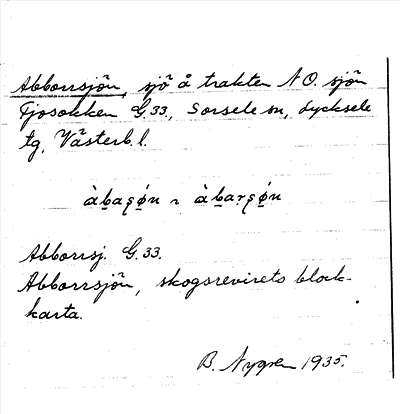 Abborrsjön, sjö å trakten NO. sjön
Fjosokken G.33., Sorsele sn, Lycksele
tg, Västerb.l.
àba̱ʂó̱n ~ àba̱rʂó̱n
Abborrsj. G.33.
Abborrsjön, skogsrevirets block-
karta.
B. Nygren 1935.